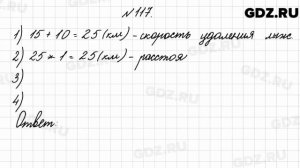 GDZ.RU
№117.
1) 15 + 10 = 25 (км) - скорость удаления лыж.
2) 25 * 1 = 25 (км) - расстоя
3)
4)
Ответ
GDZ.RU